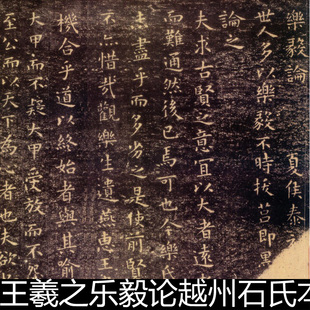 樂毅論 夏侯泰
世人多以樂毅不時拔莒即墨
論之
夫求古賢之意宜以大者遠
而難通然後已焉可也今樂氏
未盡乎而多劣之是使前賢
不亦惜哉觀樂生遺燕惠王
機合乎道以終始者與其喻
大甲而不疑大甲受放而不
至公而以天下為心者也夫欲
王羲之乐毅论越州石氏本